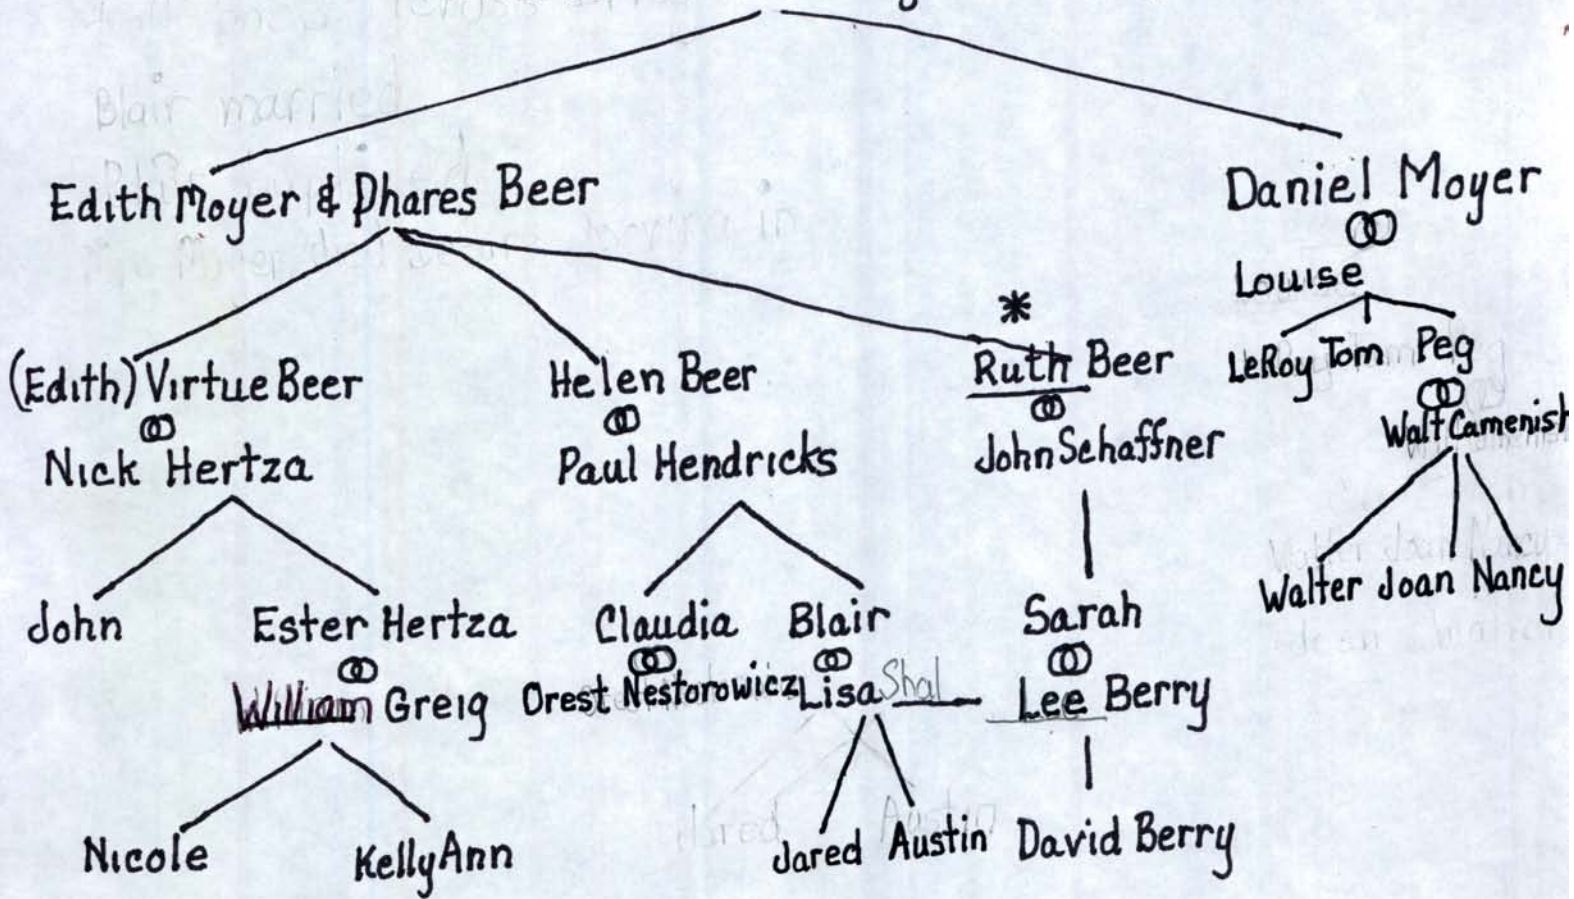 Blair married
Edith Moyer & Phares Beer
Daniel Moyer
Louise
*
(Edith) Virtue Beer
Helen Beer
Ruth Beer
LeRoy Tom Peg
Nick Hertza
Paul Hendricks
John Schaffner
Walt Camenish
John
Ester Hertza
Claudia
Blair
Sarah
Walter Joan Nancy
William Greig
Orest Nestorowicz
Lisa Shal
Lee Berry
Nicole
KellyAnn
Jared
Austin
David Berry